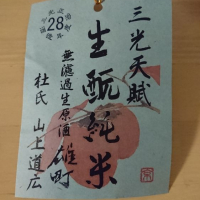 28
三光天賦
生酛純米
無濾過生原酒
雄町
杜氏 山上道広